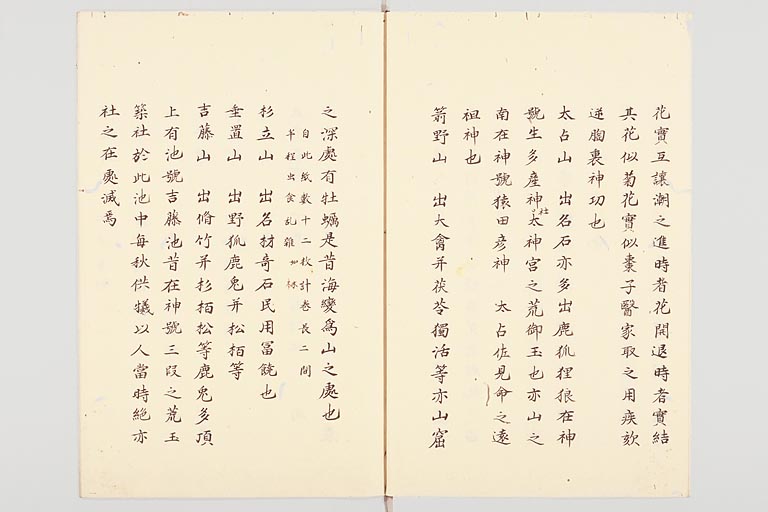 花實互讓潮之進時者花開退時者實結
其花似菊花實似棗子醫家取之用疾欬
逆胸裏神功也
太占山　出名石亦多出鹿狐狸狼在神
號生多産神社太神宮之荒御玉也亦山之
南在神號猿田彦神　太占佐見命之遠
祖神也
箭野山　出大禽并茯苓獨活等亦山窟
之深處有牡蠣是昔海變爲山之處也
自此紙数十二枚計巻長二間
半程虫食乱雑如林
杉立山　出名材奇石民用冨饒也
垂置山　出野狐鹿兎并松栢等
吉藤山　出脩竹并杉栢松等鹿兎多頂
上有池號吉藤池昔在神號三段之荒玉
築社於此池中每秋供犠以人當時絶亦
社之在處滅焉